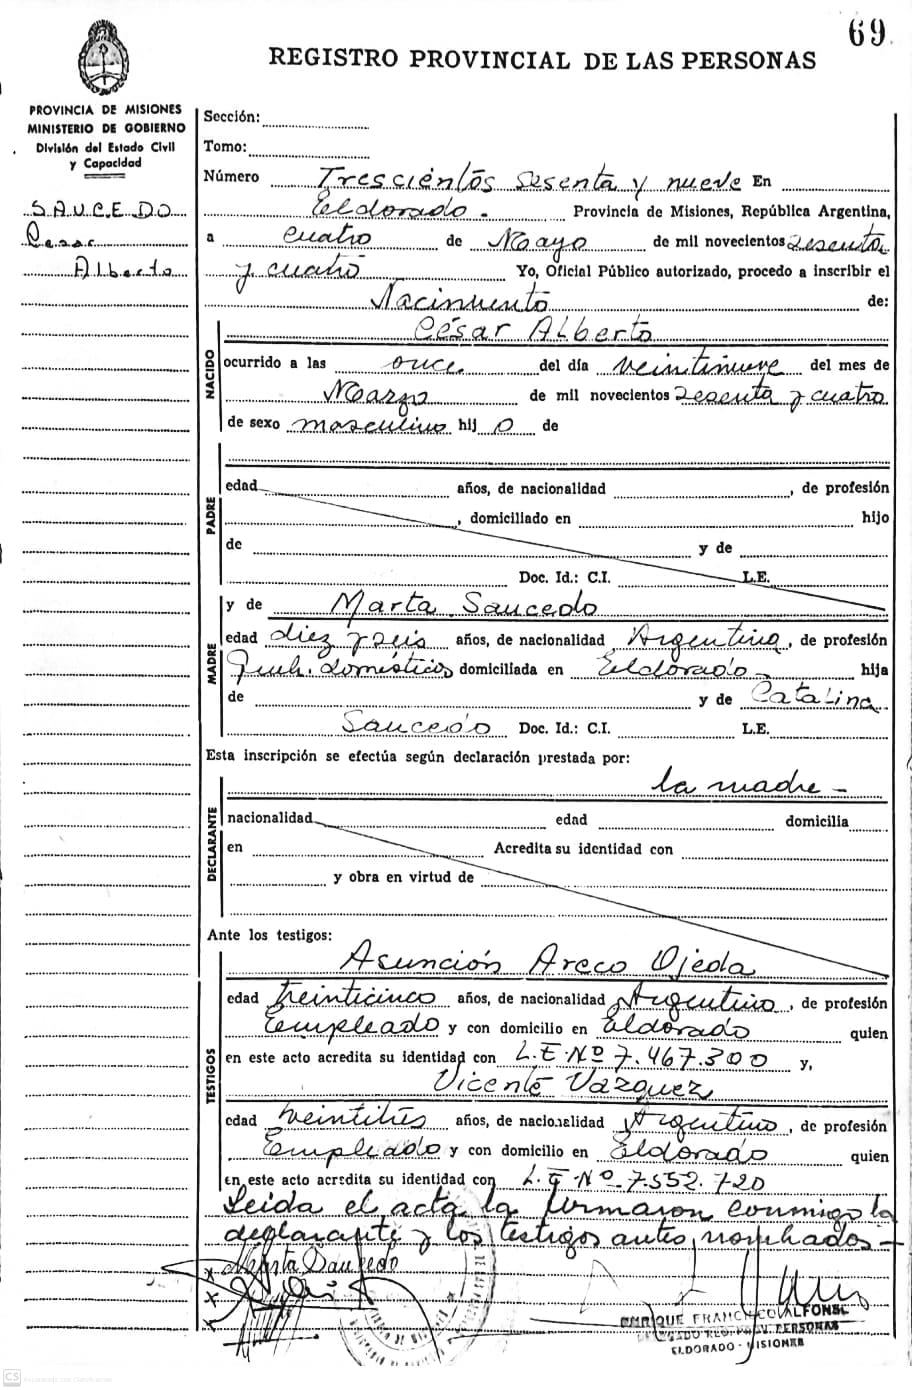 69
REGISTRO PROVINCIAL DE LAS PERSONAS
PROVINCIA DE MISIONES
MINISTERIO DE GOBIERNO
División del Estado Civil
y Capacidad
SAUCEDO
Cesar
Alberto
Sección:
Tomo:
Número Trescientos sesenta y nueve En
Eldorado. Provincia de Misiones, República Argentina,
a cuatro de Mayo de mil novecientos sesenta
y cuatro Yo, Oficial Público autorizado, procedo a inscribir el
Nacimiento de:
NACIDO
César Alberto
ocurrido a las once del día veintinueve del mes de
Marzo de mil novecientos sesenta y cuatro
de sexo masculino hij o de
PADRE
edad años, de nacionalidad , de profesión
, domiciliado en hijo
de y de
Doc. Id.: C.I. L.E.
MADRE
y de Marta Saucedo
edad diez y seis años, de nacionalidad Argentina, de profesión
Queh. domésticos domiciliada en Eldorado - hija
de y de Catalina
Saucedo Doc. Id.: C.I. L.E.
Esta inscripción se efectúa según declaración prestada por:
la madre -
DECLARANTE
nacionalidad edad domicilia
en Acredita su identidad con
y obra en virtud de
Ante los testigos:
TESTIGOS
Asunción Areco Ojeda
edad treinticinco años, de nacionalidad Argentino, de profesión
Empleado y con domicilio en Eldorado quien
en este acto acredita su identidad con L.E Nº 7.467.300 y,
Vicente Vazquez
edad veintitrés años, de nacionalidad Argentino, de profesión
Empleado y con domicilio en Eldorado quien
en este acto acredita su identidad con L.E Nº 7.552.720
Leida el acta la firmaron conmigo la
declarante y los testigos antes nombrados -
Marta Saucedo
ENRIQUE FRANCISCO ALFONSO
DELEGADO REG. PROV. PERSONAS
ELDORADO - MISIONES
CS